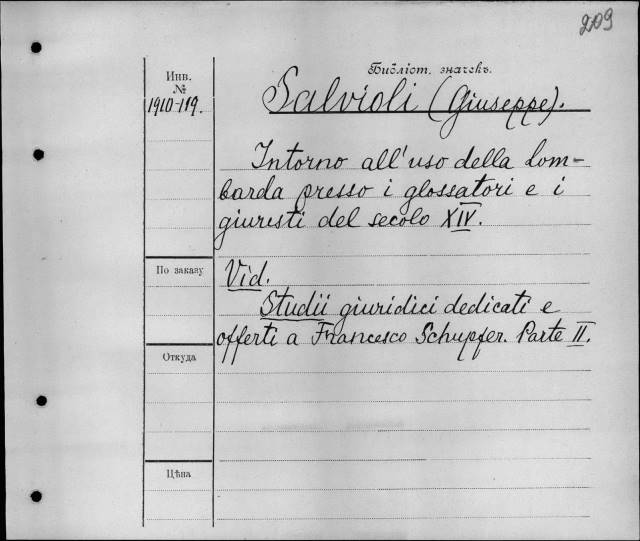 209
Библіот. значекъ.
Инв.
№
1910-119.
Salvioli (Giuseppe).
Intorno all'uso della lom-
barda presso i glossatori e i
giuristi del secolo XIV.
По заказу
Vid.
Studii giuridici dedicati e
offerti a Francesco Schupfer. Parte II.
Откуда
Цѣна